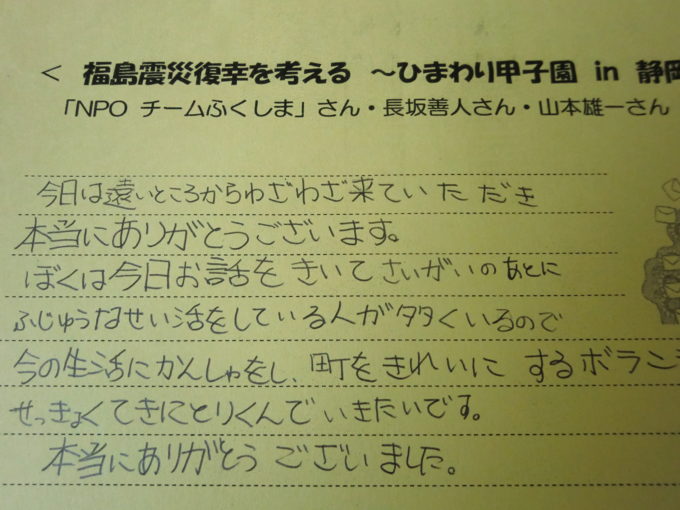 < 福島震災復幸を考える ～ひまわり甲子園 in 静岡
「NPO チームふくしま」さん・長坂善人さん・山本雄一さん
今日は遠いところからわざわざ来ていただき
本当にありがとうございます。
ぼくは今日お話をきいてさいがいのあとに
ふじゅうなせい活をしている人が多くいるので
今の生活にかんしゃをし、町をきれいにするボラン
せっきょくてきにとりくんでいきたいです。
本当にありがとうございました。